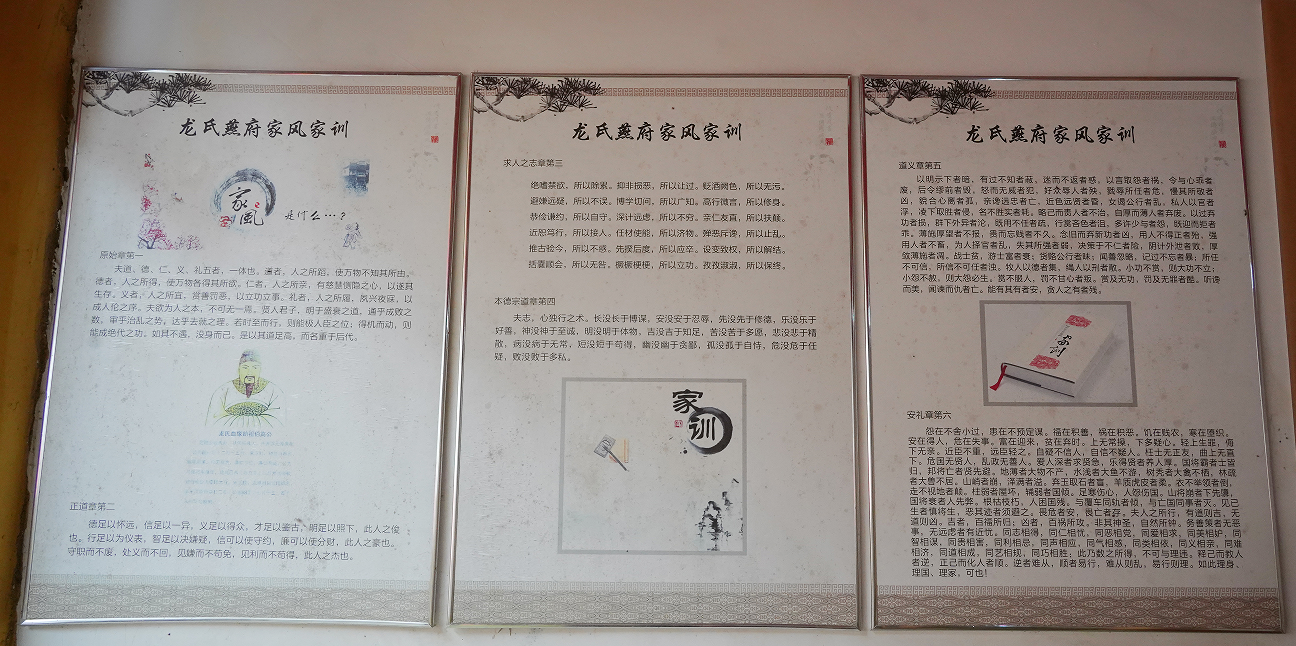 龙氏燕府家风家训
家風
是什么…?
原始章第一
夫道、德、仁、义、礼五者，一体也。道者，人之所蹈，使万物不知其所由。
德者，人之所得，使万物各得其所欲。仁者，人之所亲，有慈慧恻隐之心，以遂其
生存。义者，人之所宜，赏善罚恶，以立功立事。礼者，人之所履，夙兴夜寐，以
成人伦之序。夫欲为人之本，不可无一焉。贤人君子，明于盛衰之道，通乎成败之
数，审乎治乱之势，达乎去就之理。若时至而行，则能极人臣之位；得机而动，则
能成绝代之功。如其不遇，没身而已。是以其道足高，而名重于后代。
正道章第二
德足以怀远，信足以一异，义足以得众，才足以鉴古，明足以照下，此人之俊
也。行足以为仪表，智足以决嫌疑，信可以使守约，廉可以使分财，此人之豪也。
守职而不废，处义而不回，见嫌而不苟免，见利而不苟得，此人之杰也。
龙氏燕府家风家训
求人之志章第三
绝嗜禁欲，所以除累。抑非损恶，所以让过。贬酒阙色，所以无污。
避嫌远疑，所以不误。博学切问，所以广知。高行微言，所以修身。
恭俭谦约，所以自守。深计远虑，所以不穷。亲仁友直，所以扶颠。
近恕笃行，所以接人。任材使能，所以济物。殚恶斥谗，所以止乱。
推古验今，所以不惑。先揆后度，所以应卒。设变致权，所以解结。
括囊顾会，所以无咎。橛橛梗梗，所以立功。孜孜淑淑，所以保终。
本德宗道章第四
夫志，心独行之术。长没长于博谋，安没安于忍辱，先没先于修德，乐没乐于
好善，神没神于至诚，明没明于体物，吉没吉于知足，苦没苦于多愿，悲没悲于精
散，病没病于无常，短没短于苟得，幽没幽于贪鄙，孤没孤于自恃，危没危于任
疑，败没败于多私。
家训
龙氏燕府家风家训
道义章第五
以明示下者暗，有过不知者蔽，迷而不返者惑，以言取怨者祸，令与心乖者
废，后令缪前者毁，怒而无威者犯，好众辱人者殃，戮辱所任者危，慢其所敬者
凶，貌合心离者孤，亲谗远忠者亡，近色远贤者昏，女谒公行者乱，私人以官者
浮，凌下取胜者侵，名不胜实者耗。略己而责人者不治，自厚而薄人者弃废。以过弃
功者损，群下外异者沦，既用不任者疏，行赏吝色者沮，多许少与者怨，既迎而拒者
乖。薄施厚望者不报，贵而忘贱者不久。念旧而弃新功者凶，用人不得正者殆，强
用人者不畜，为人择官者乱，失其所强者弱，决策于不仁者险，阴计外泄者败，厚
敛薄施者凋。战士贫，游士富者衰；货赂公行者昧；闻善忽略，记过不忘者暴；所任
不可信，所信不可任者浊。牧人以德者集，绳人以刑者散。小功不赏，则大功不立；
小怨不赦，则大怨必生。赏不服人，罚不甘心者叛。赏及无功，罚及无罪者酷。听谗
而美，闻谏而仇者亡。能有其有者安，贪人之有者残。
家训
安礼章第六
怨在不舍小过，患在不预定谋。福在积善，祸在积恶。饥在贱农，寒在堕织。
安在得人，危在失事。富在迎来，贫在弃时。上无常操，下多疑心。轻上生罪，侮
下无亲。近臣不重，远臣轻之。自疑不信人，自信不疑人。枉士无正友，曲上无直
下。危国无贤人，乱政无善人。爱人深者求贤急，乐得贤者养人厚。国将霸者士皆
归，邦将亡者贤先避。地薄者大物不产，水浅者大鱼不游，树秃者大禽不栖，林疏
者大兽不居。山峭者崩，泽满者溢。弃玉取石者盲，羊质虎皮者柔。衣不举领者倒，
走不视地者颠。柱弱者屋坏，辅弱者国倾。足寒伤心，人怨伤国。山将崩者下先隳，
国将衰者人先弊。根枯枝朽，人困国残。与覆车同轨者倾，与亡国同事者灭。见已
生者慎将生，恶其迹者须避之。畏危者安，畏亡者存。夫人之所行，有道则吉，无
道则凶。吉者，百福所归；凶者，百祸所攻。非其神圣，自然所钟。务善策者无恶
事，无远虑者有近忧。同志相得，同仁相忧，同恶相党，同爱相求，同美相妒，同
智相谋，同贵相害，同利相忌，同声相应，同气相感，同类相依，同义相亲，同难
相济，同道相成，同艺相规，同巧相胜；此乃数之所得，不可与理违。释己而教人
者逆，正己而化人者顺。逆者难从，顺者易行，难从则乱，易行则理。如此理身、
理国、理家，可也！